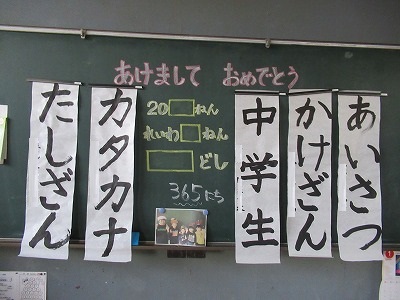 あけまして おめでとう
あいさつ
かけざん
中学生
20□ねん
れいわ□ねん
□どし
365にち
カタカナ
たしざん